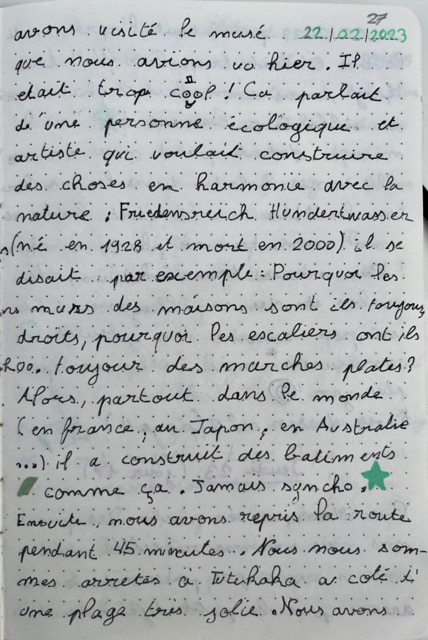 27
avons visité le musé 22/02/2023
que nous avions vu hier. Il
etait trop cool ! Ca parlait
d'une personne écologique et
artiste qui voulait construire
des choses en harmonie avec la
nature : Friedensreich Hundertwasser
(né en 1928 et mort en 2000) il se
disait par exemple : Pourquoi les
murs des maisons sont ils toujour
droits, pourquoi les escaliers ont ils
toujour des marches plates ?
Alors, partout dans le monde
(en france, au Japon, en Australie
...) il a construit des batiments
comme ça. Jamais
Ensuite, nous avons repris la route
pendant 45 minutes. Nous nous som-
mes arretés à Tutukaka a coté d'
une plage très jolie. Nous avons